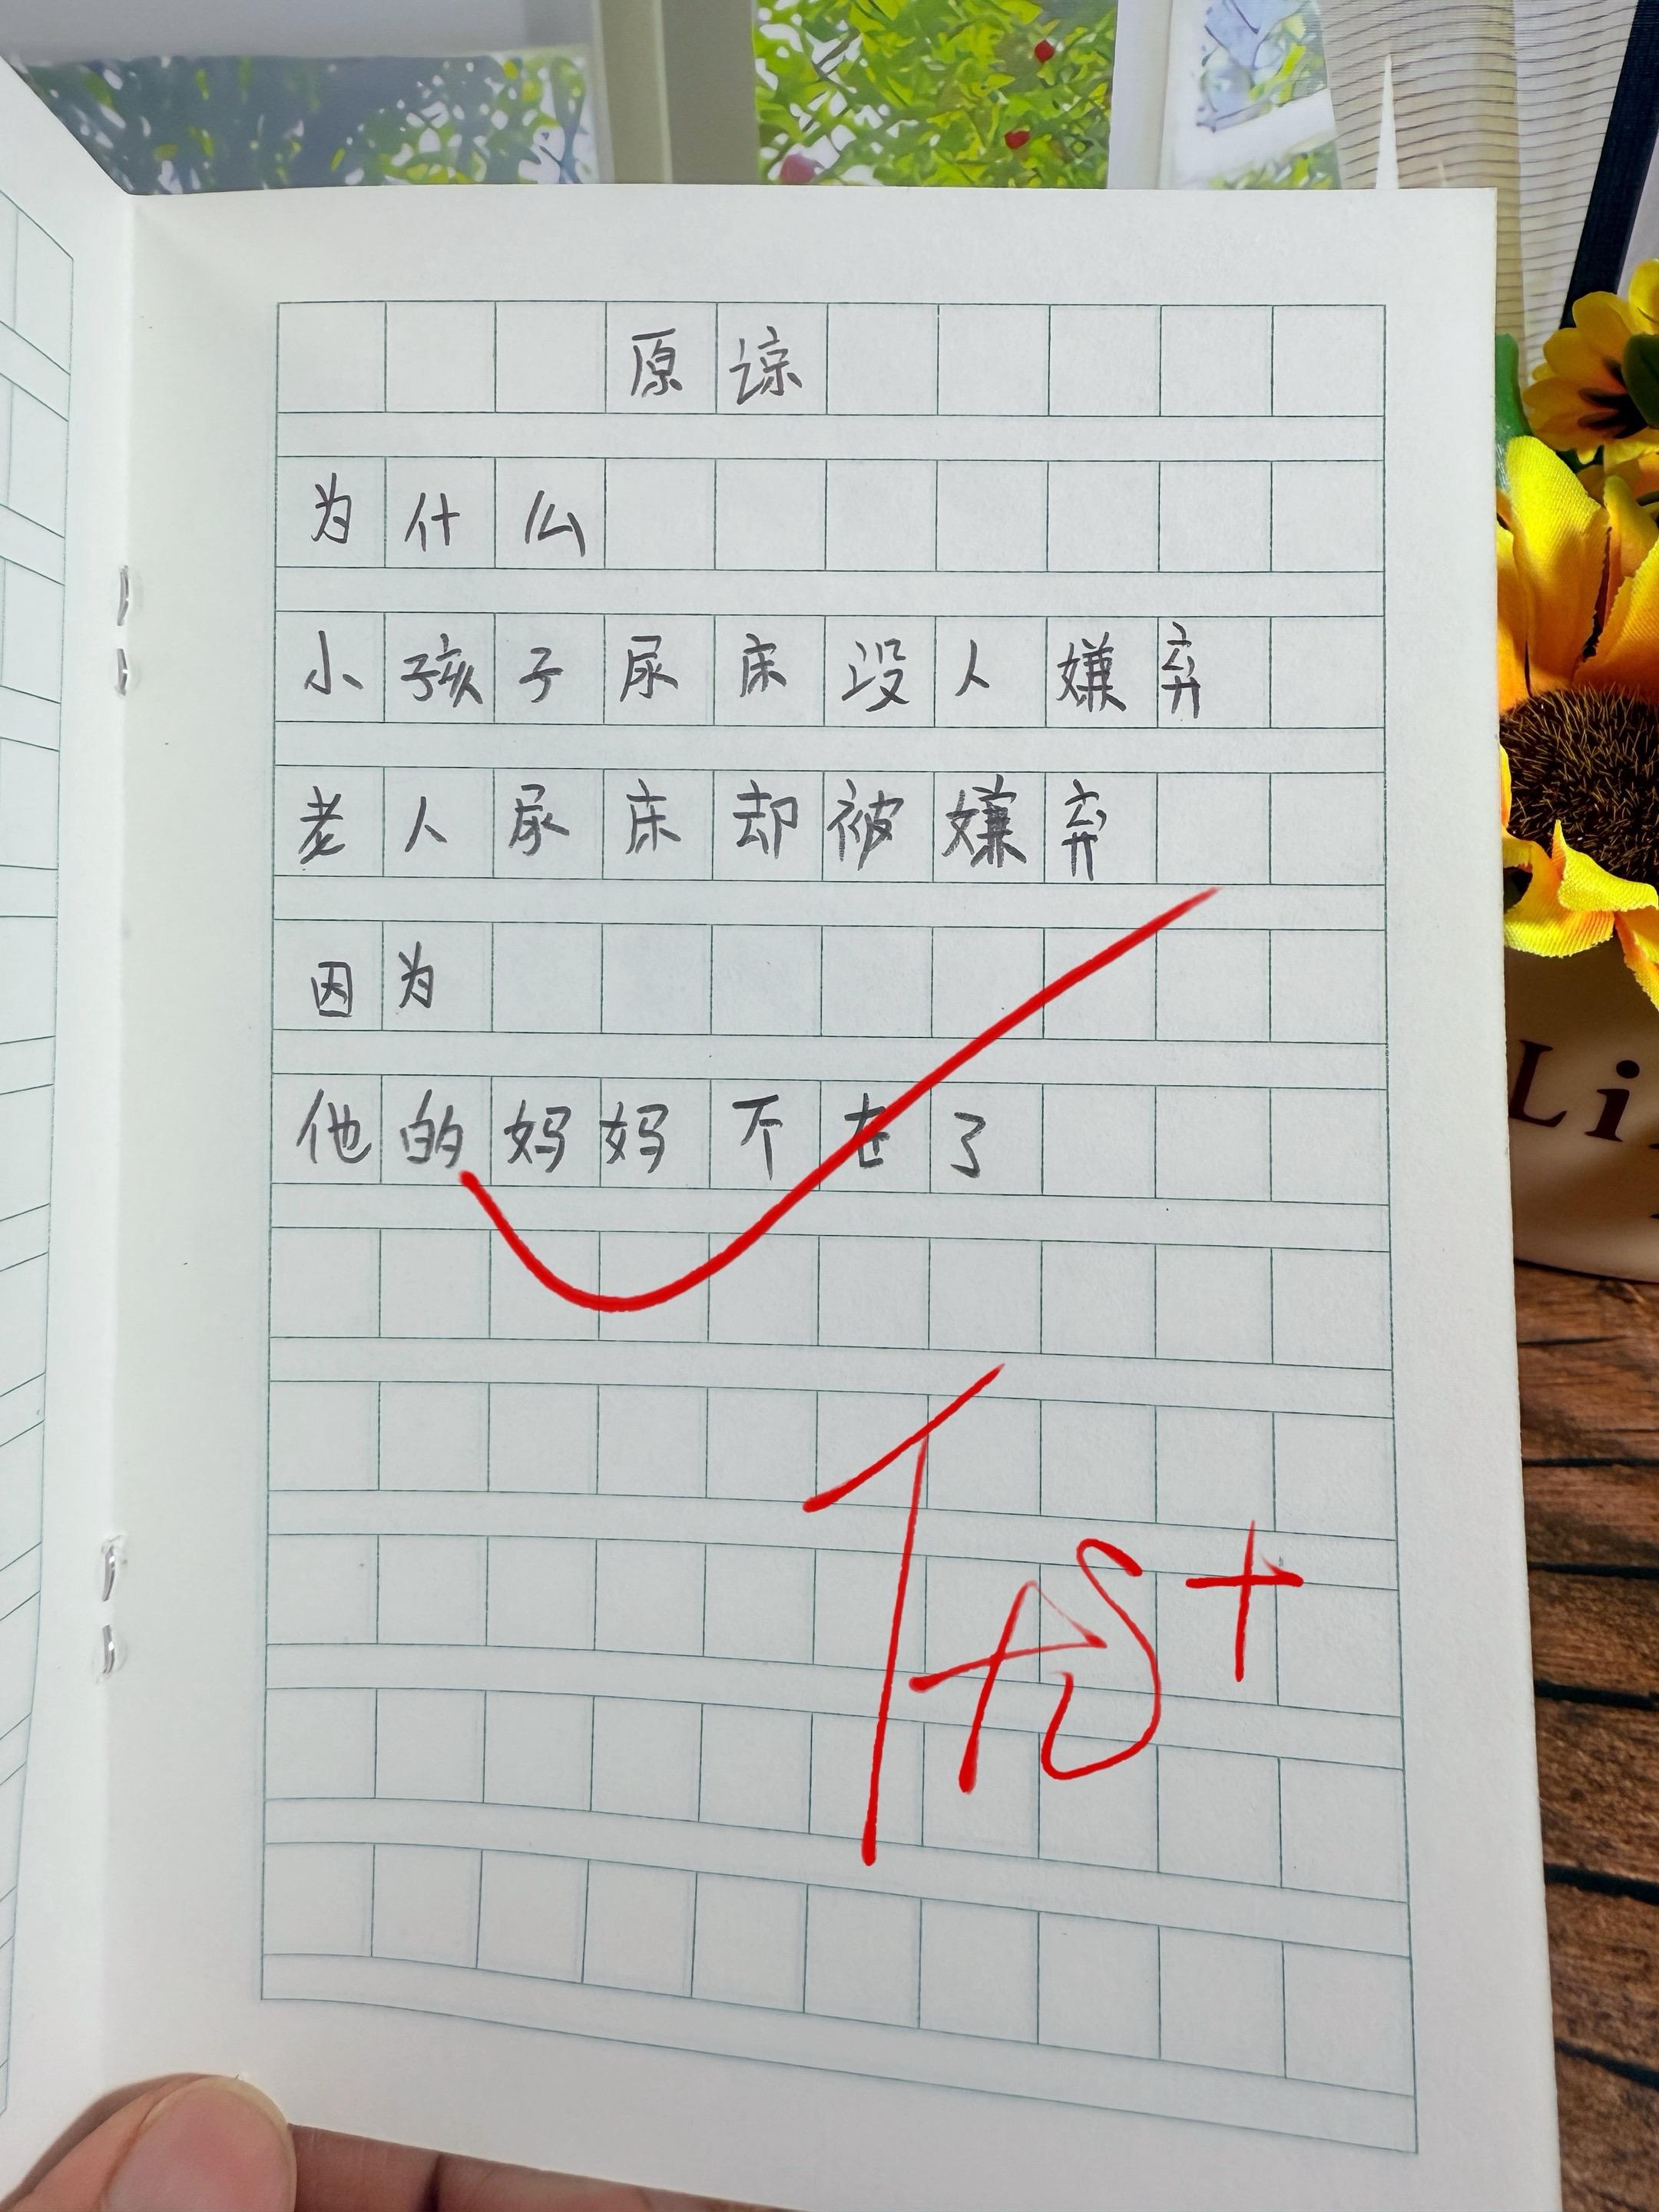 原谅
为什么
小孩子尿床没人嫌弃
老人尿床却被嫌弃
因为
他的妈妈不在了
Li